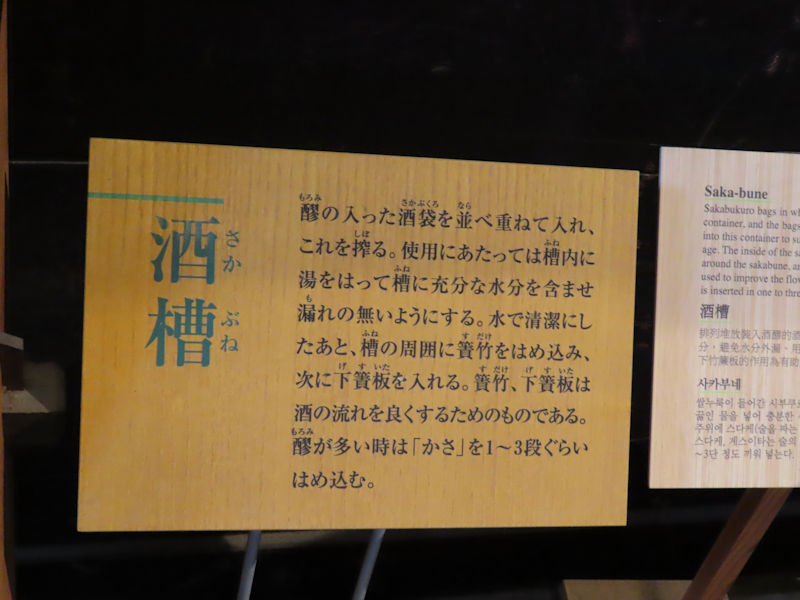 酒槽
さかぶね
醪の入った酒袋を並べ重ねて入れ、
これを搾る。使用にあたっては槽内に
湯をはって槽に充分な水分を含ませ
漏れの無いようにする。水で清潔にし
たあと、槽の周囲に簀竹をはめ込み、
次に下簀板を入れる。簀竹、下簀板は
酒の流れを良くするためのものである。
醪が多い時は「かさ」を1〜3段ぐらい
はめ込む。
Saka-bune
Sakabukuro bags in
container, and the bags
into this container to
age. The inside of the
around the sakabune,
used to improve the
is inserted in one to
酒槽
排列堆放裝入酒醪的
分，避免水分外漏、用
下竹簾板的作用為有助
사카부네
쌀누룩이 들어간
끓인 물을 넣어 충분한
주위에 스다케(술을 짜는
스다케, 게스이타는 술의
～3단 정도 끼워 넣는다.